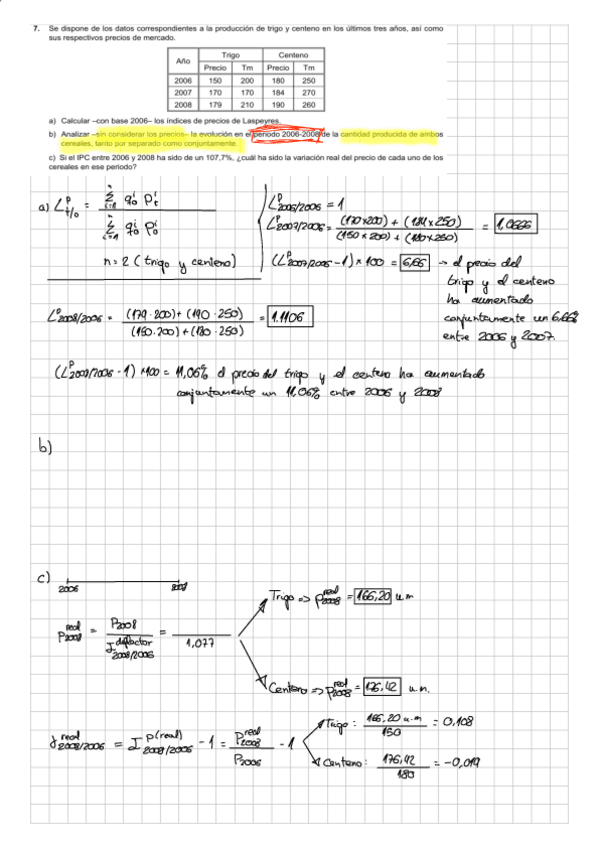 7. Se dispone de los datos correspondientes a la producción de trigo y centeno en los últimos tres años, así como
sus respectivos precios de mercado.
Año Trigo Centeno
Precio Tm Precio Tm
2006 150 200 180 250
2007 170 170 184 270
2008 179 210 190 260
a) Calcular –con base 2006– los índices de precios de Laspeyres.
b) Analizar –sin considerar los precios– la evolución en el periodo 2006-2008 de la cantidad producida de ambos
cereales, tanto por separado como conjuntamente.
c) Si el IPC entre 2006 y 2008 ha sido de un 107,7%, ¿cuál ha sido la variación real del precio de cada uno de los
cereales en ese periodo?
a) L^p_{t/0} = Σ^n_{i=1} q^i_0 p^i_t / Σ^n_{i=1} q^i_0 p^i_0
n=2 (trigo y centeno)
L^p_{2006/2006} = 1
L^p_{2007/2006} = (170×200) + (184×250) / (150×200) + (180×250) = 1,0666
(L^p_{2007/2006} -1) × 100 = 6,66 → el precio del
trigo y el centeno
ha aumentado
conjuntamente un 6,66%
entre 2006 y 2007.
L^p_{2008/2006} = (179·200)+(190·250) / (150·200)+(180·250) = 1.1106
(L^p_{2008/2006} -1) ×100 = 11,06% el precio del trigo y el centeno ha aumentado
conjuntamente un 11,06% entre 2006 y 2008
b)
c) 2006 2008
P^{real}_{2008} = P_{2008} / I^{deflactor}_{2008/2006} = / 1,077
Trigo => P^{real}_{2008} = 166,20 u.m
Centeno => P^{real}_{2008} = 176,42 u.m.
^{real}_{2008/2006} = I^{P(real)}_{2008/2006} - 1 = P^{real}_{2008} / P_{2006} - 1
Trigo: 166,20 u.m / 150 = 0,108
Centeno: 176,42 / 180 = -0,019